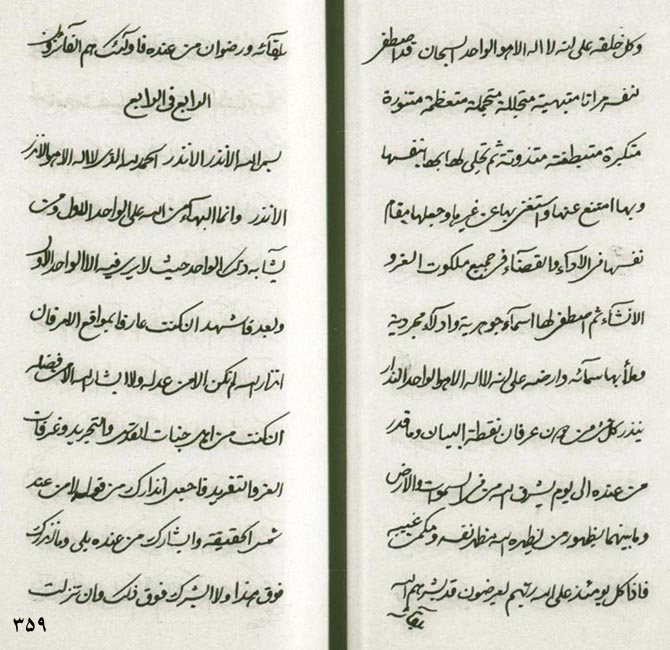 وكل خلقه على انه لا اله الا هو الواحد السبحان قد اصطفى
لنفسه مراتا متبهية متجللة متجملة متعظمة متنورة
متكبرة ثم تجلى لها بها بنفسها
وبها امتنع عنها واستغنى بها عن غيرها وجعلها مقام
نفسها فى الاداء والقضاء فى جميع ملكوت العز و
الانشاء ثم اصطفى لها اسماء جوهرية وادلاء مجردية
وملأ بها سمائه وارضه على انه لا اله الا هو الواحد النذار
ينذر كل من عرفان نقطة البيان وما قدر
من عنده الى يوم يشرق الله من فى السموات والارض
وما بينهما بظهور من يظهره الله مظهر نفسه ومكمن غيبه
فاذا كل يومئذ على الله ربهم ليعرضون قد بشرهم الله
بلقائه
بلقائه ورضوان من عنده فاولئك هم الفائزون
الرابع فى الرابع
بسم الله الأنذر الأنذر الحمد لله الذى لا اله الا هو الأنذر
الانذر وانما البهاء من الله على الواحد الاول ومن
يشابه ذلك الواحد حيث لا يرى فيه الا الواحد الاول
وبعد فاشهد ان كنت عارفا بمواقع الامر فان
انذار الله لم يكن الا من عدله ولا ابشار الله الا من فضله
ان كنت من اهل جنات القدس والتجريد وغرفات
العز والتفريد فاجعل انذارك من قوله لا من عند
شمس الحقيقة وابشارك من عنده بلى وما نذرك
فوق هذا ولا ابشرك فوق ذلك وان تنزلت
٣٥٩